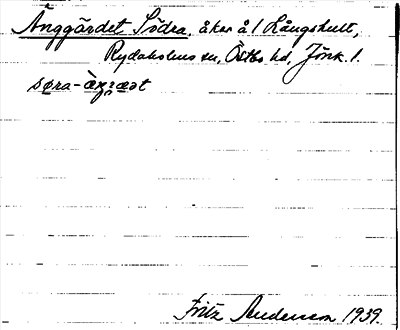 Änggärdet Södra, åker å 1 Långshult,
Rydaholms sn, Östbo hd, Jönk. l.
Fritz Anderson 1939.